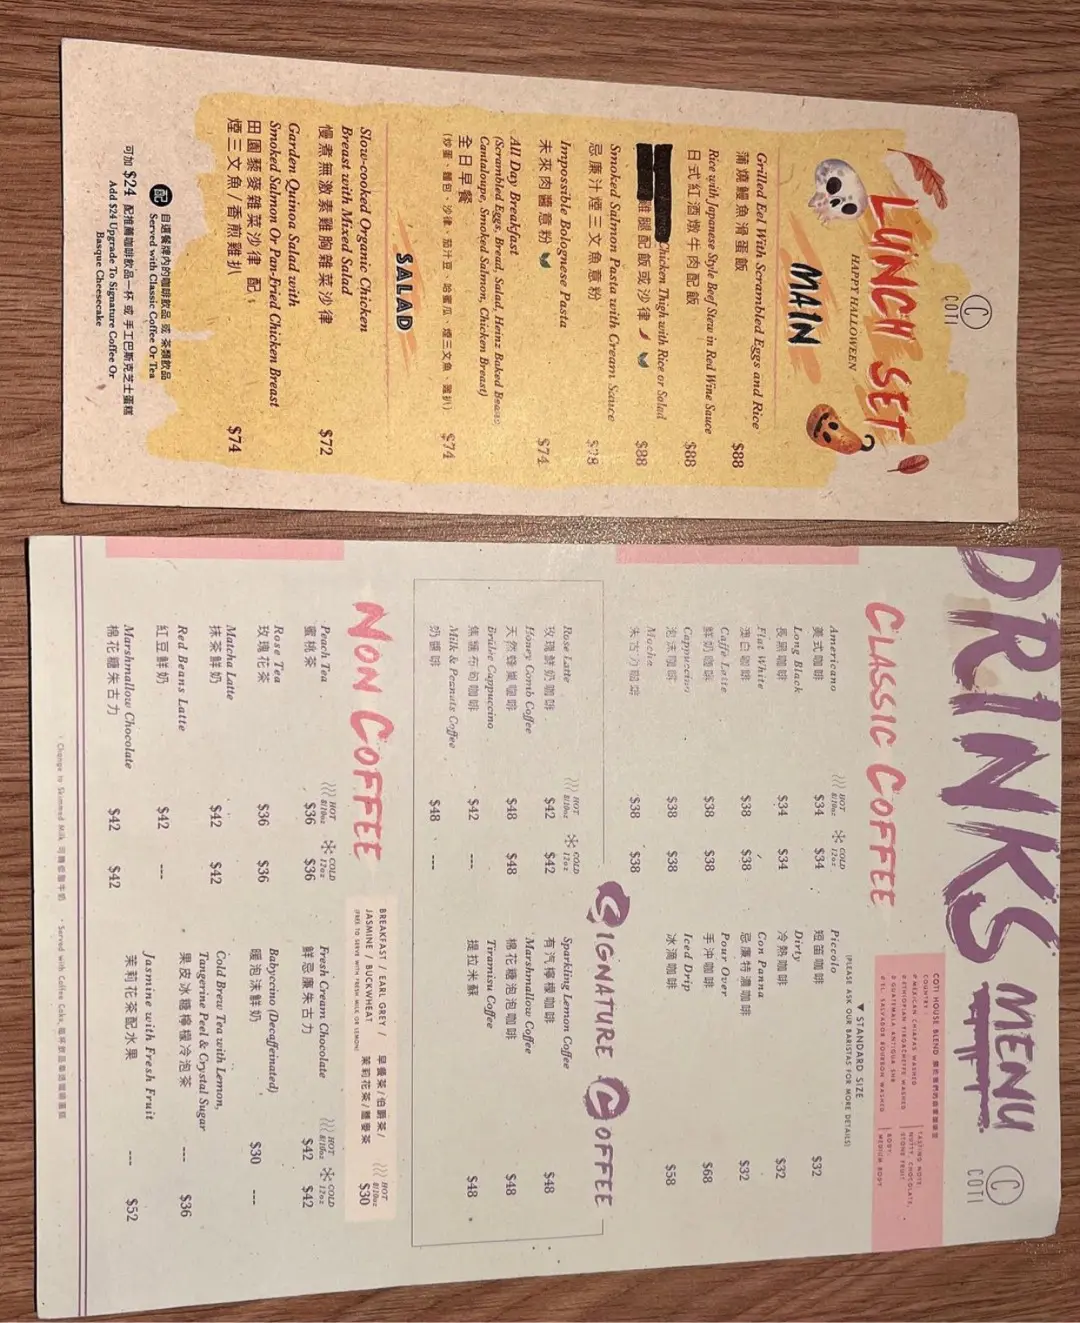 COTI
LUNCH SET
HAPPY HALLOWEEN
MAIN
Grilled Eel With Scrambled Eggs and Rice
蒲燒鰻魚滑蛋飯 $88
Rice with Japanese Style Beef Stew in Red Wine Sauce
日式紅酒燉牛肉配飯 $88
Chicken Thigh with Rice or Salad
雞腿配飯或沙律 $88
Smoked Salmon Pasta with Cream Sauce
忌廉汁煙三文魚意粉 $78
Impossible Bolognese Pasta
未來肉醬意粉 $74
All Day Breakfast
(Scrambled Eggs, Bread, Salad, Heinz Baked Beans,
Cantaloupe, Smoked Salmon, Chicken Breast)
全日早餐
(炒蛋、麵包、沙律、茄汁豆、哈蜜瓜、煙三文魚、雞扒) $74
SALAD
Slow-cooked Organic Chicken
Breast with Mixed Salad
慢煮無激素雞胸雜菜沙律 $72
Garden Quinoa Salad with
Smoked Salmon Or Pan-Fried Chicken Breast
田園藜麥雜菜沙律 配:
煙三文魚/香煎雞扒 $74
配 自選餐牌內的咖啡飲品 或 茶類飲品
Served with Classic Coffee Or Tea
可加 $24 配推薦咖啡飲品一杯 或 手工巴斯克芝士蛋糕
Add $24 Upgrade To Signature Coffee Or
Basque Cheesecake
DRINKS MENU
COTI
CLASSIC COFFEE
COTI HOUSE BLEND
COUNTRY:
MEXICAN CHIAPAS WASHED
ETHIOPIAN YIRGACHEFFE WASHED
GUATEMALA ANTIGUA SHB
EL SALVADOR BOURBON WASHED
TASTING NOTE:
NUTTY, CHOCOLATE,
STONE FRUIT
BODY:
MEDIUM BODY
HOT 8/10oz COLD 12oz
Americano
美式咖啡 $34 $34
Long Black
長黑咖啡 $34 $34
Flat White
澳白咖啡 $38 $38
Caffè Latte
鮮奶咖啡 $38 $38
Cappuccino
泡沫咖啡 $38 $38
Mocha
朱古力咖啡 $38 $38
▼ STANDARD SIZE
(PLEASE ASK OUR BARISTAS FOR MORE DETAILS)
Piccolo
短笛咖啡 $32
Dirty
冷熱咖啡 $32
Con Panna
忌廉特濃咖啡 $32
Pour Over
手沖咖啡 $68
Iced Drip
冰滴咖啡 $58
SIGNATURE COFFEE
HOT 8/10oz COLD 12oz
Rose Latte
玫瑰鮮奶咖啡 $42 $42
Honey Comb Coffee
天然蜂巢咖啡 $48 $48
Brûlée Cappuccino
焦糖布甸咖啡 $42 ---
Milk & Peanuts Coffee
奶醬啡 $48 ---
Sparkling Lemon Coffee
有汽檸檬咖啡 $48
Marshmallow Coffee
棉花糖泡泡咖啡 $48
Tiramisu Coffee
提拉米蘇 $48
NON COFFEE
HOT 8/10oz COLD 12oz
Peach Tea
蜜桃茶 $36 $36
Rose Tea
玫瑰花茶 $36 $36
Matcha Latte
抹茶鮮奶 $42 $42
Red Beans Latte
紅豆鮮奶 $42 ---
Marshmallow Chocolate
棉花糖朱古力 $42 $42
BREAKFAST / EARL GREY /
JASMINE / BUCKWHEAT
(FREE TO SERVE WITH FRESH MILK OR LEMON)
早餐茶/伯爵茶/
茉莉花茶/蕎麥茶
HOT 8/10oz
$30
HOT 8/10oz COLD 12oz
Fresh Cream Chocolate
鮮忌廉朱古力 $42 $42
Babyccino (Decaffeinated)
暖泡沫鮮奶 $30 ---
Cold Brew Tea with Lemon,
Tangerine Peel & Crystal Sugar
果皮冰糖檸檬冷泡茶 --- $36
Jasmine with Fresh Fruit
茉莉花茶配水果 --- $52
Change to Skimmed Milk 可轉低脂牛奶
Served with Coffee Cake,